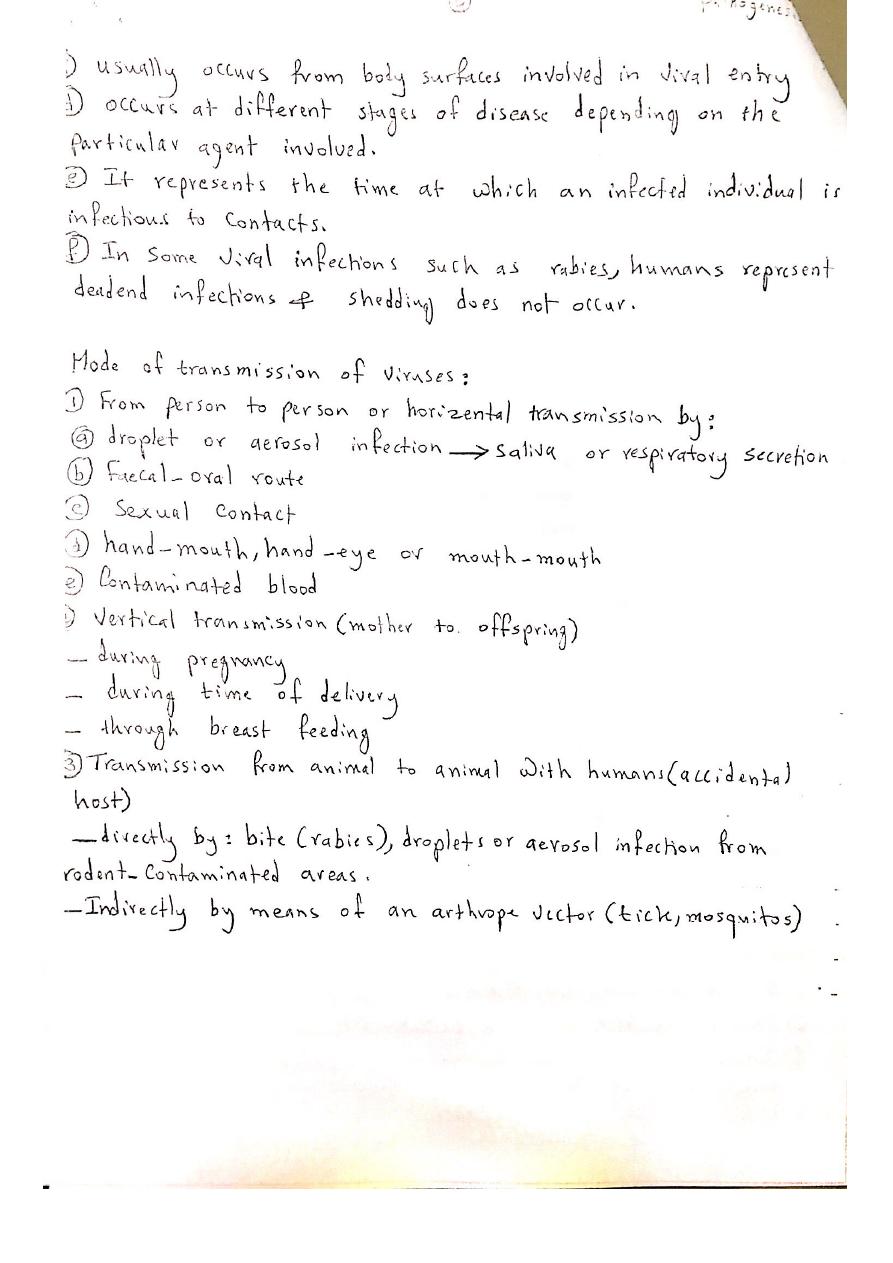 usually occurs from body surfaces involved in viral entry
occurs at different stages of disease depending on the
particular agent involved.
ⓔ It represents the time at which an infected individual is
infectious to contacts.
ⓕ In some viral infections such as rabies, humans represent
deadend infections & shedding does not occur.
Mode of transmission of viruses:
① From person to person or horizental transmission by:
ⓐ droplet or aerosol infection → saliva or respiratory secretion
ⓑ Faecal-oral route
ⓒ Sexual contact
ⓓ hand-mouth, hand-eye or mouth-mouth
ⓔ Contaminated blood
Vertical transmission (mother to offspring)
- during pregnancy
- during time of delivery
- through breast feeding
③ Transmission from animal to animal with humans (accidental
host)
- directly by: bite (rabies), droplets or aerosol infection from
rodent-contaminated areas.
- Indirectly by means of an arthrope vector (tick, mosquitos)